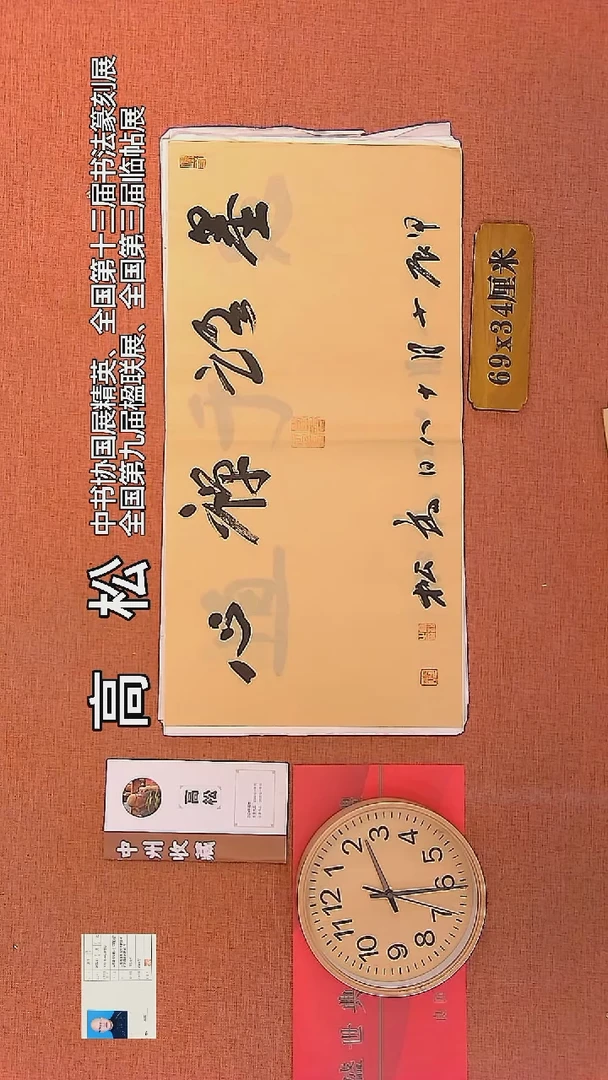 高 松
中书协国展精英、全国第十三届书法篆刻展
全国第九届楹联展、全国第三届临帖展
墨 禅心
甲辰十月十八日高松
69x34厘米
高松
中州收藏
盛世典
12 1 2 3 4 5 6 7 8 9 10 11